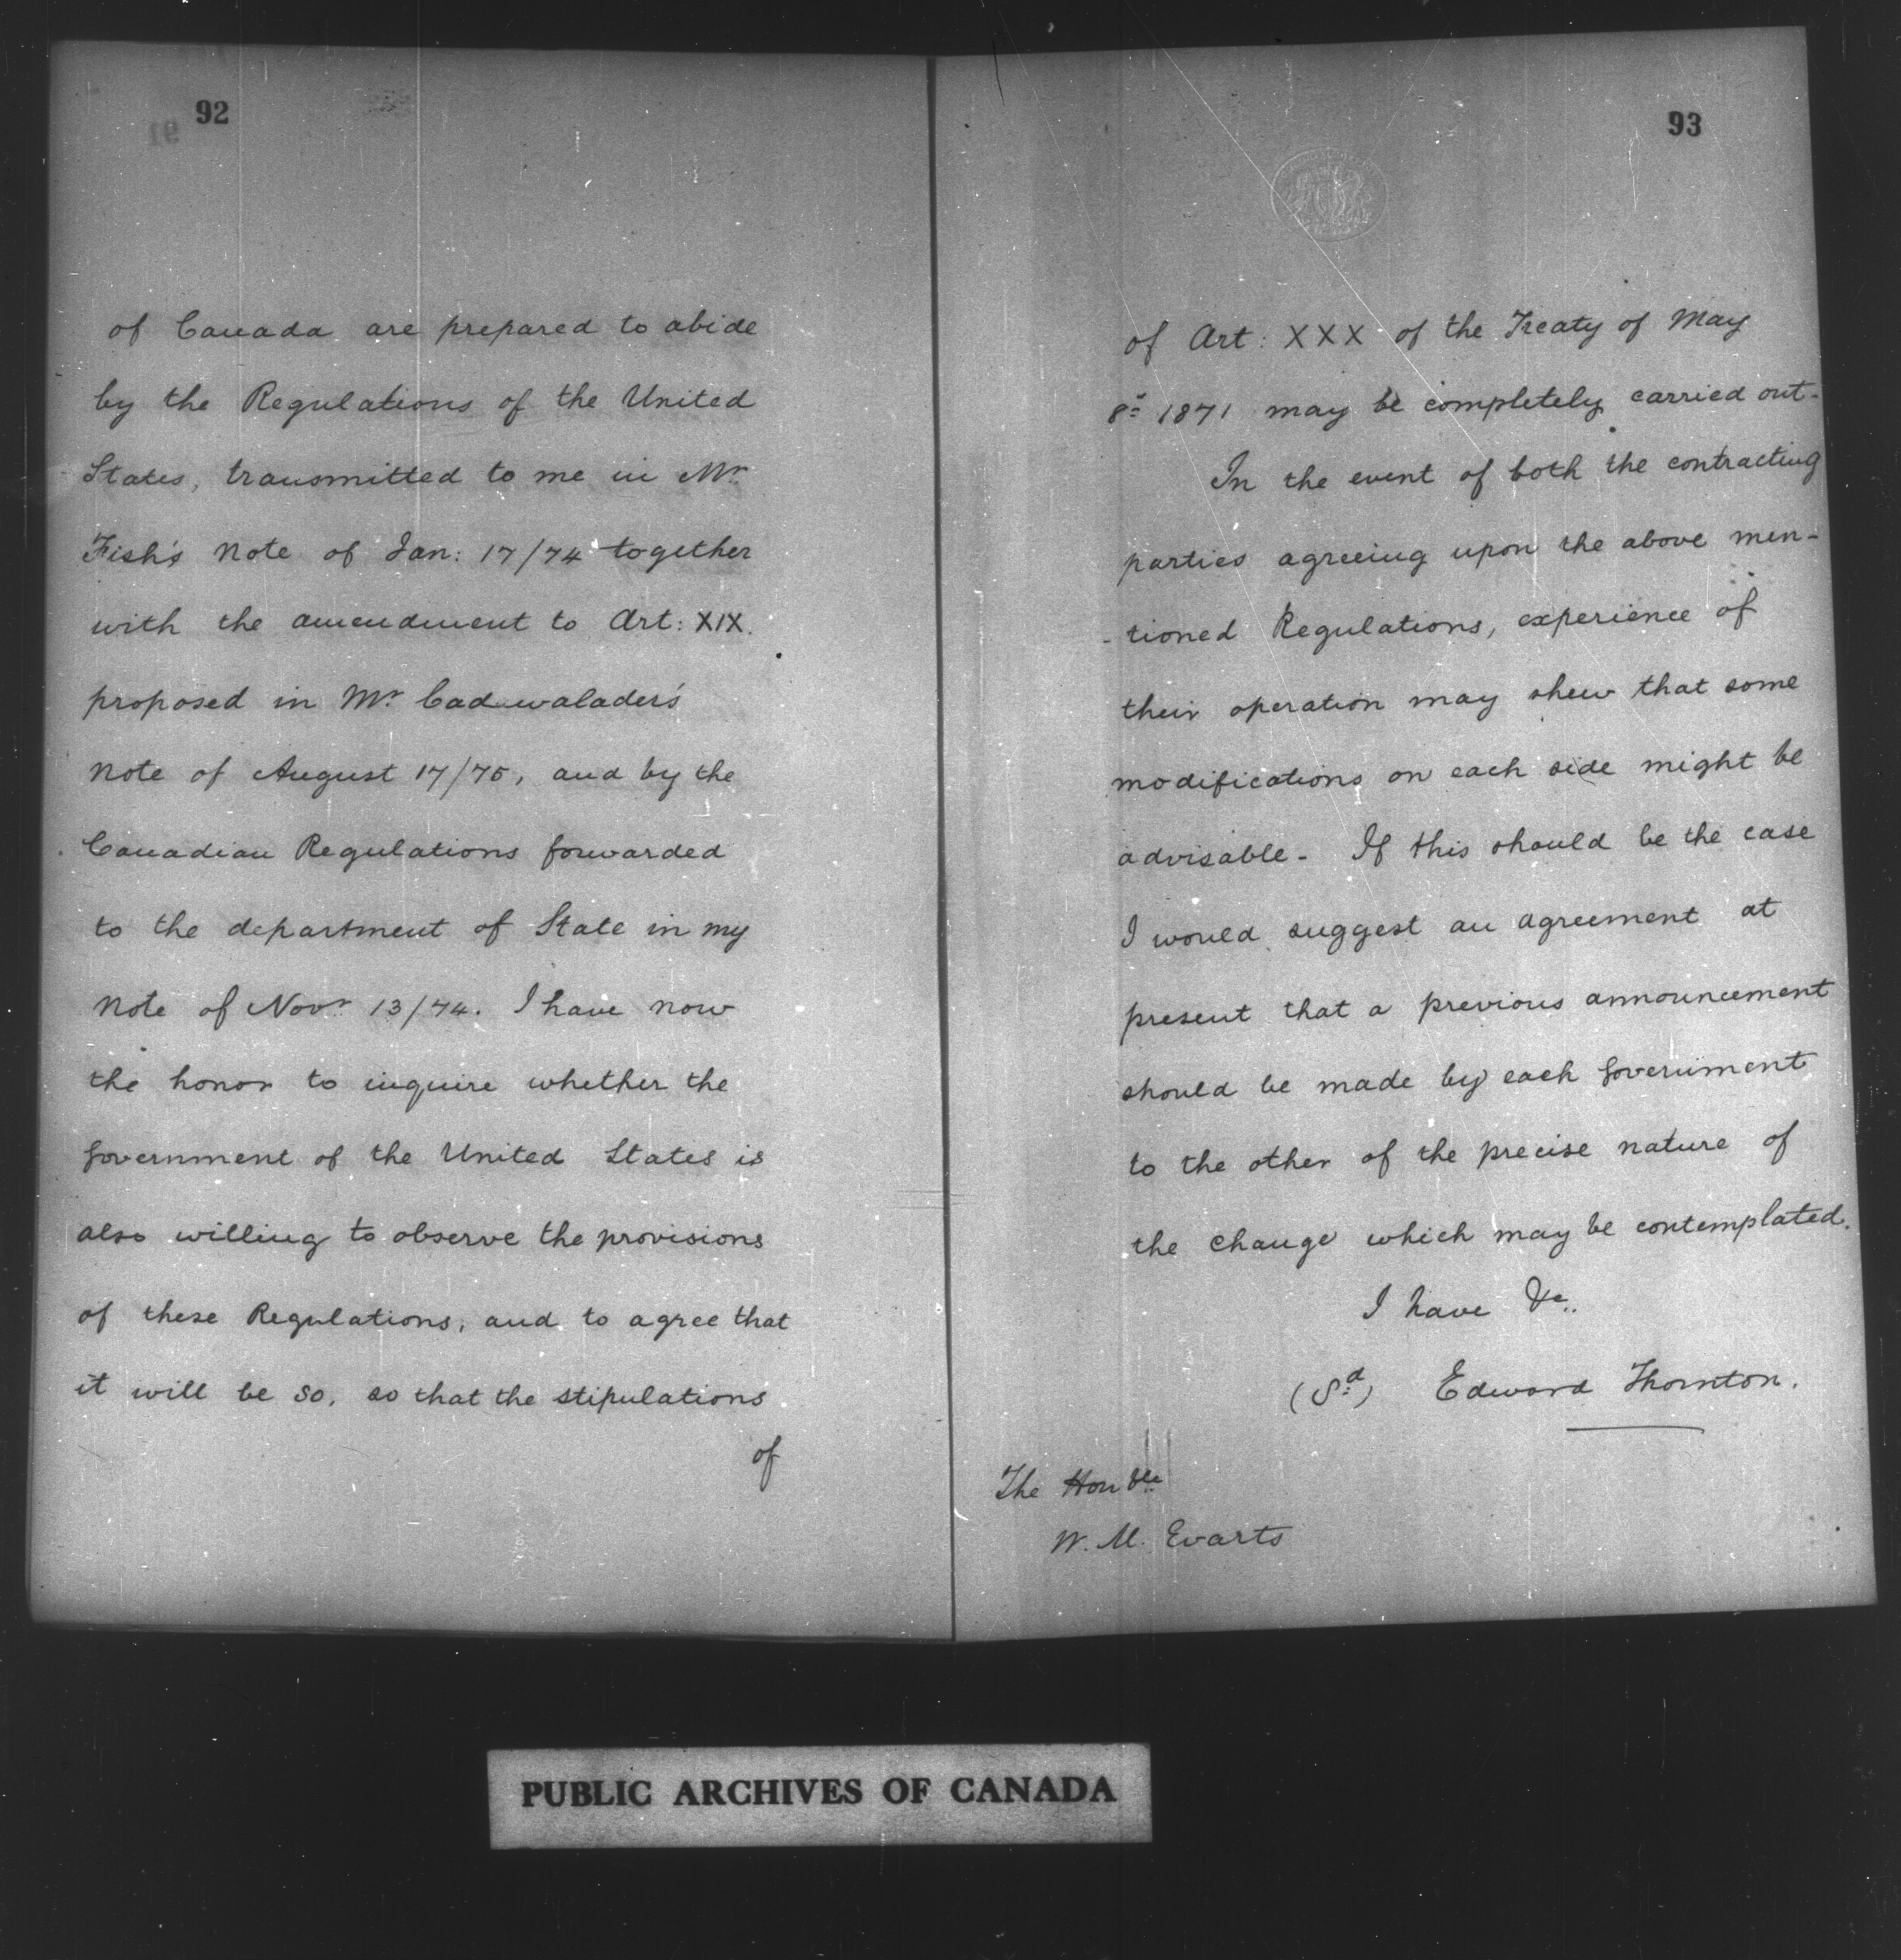 92
of Canada are prepared to abide
by the Regulations of the United
States, transmitted to me in Mr.
Fish's Note of Jan: 17/74 together
with the amendment to Art: XIX.
proposed in Mr. Cadwalader's
Note of August 17/75, and by the
Canadian Regulations forwarded
to the department of State in my
Note of Novr 13/74. I have now
the honor to inquire whether the
Government of the United States is
also willing to observe the provisions
of these Regulations, and to agree that
it will be so, so that the stipulations
of
93
of Art: XXX of the Treaty of May
8th 1871 may be completely carried out-
In the event of both the contracting
parties agreeing upon the above men-
-tioned Regulations, experience of
their operation may shew that some
modifications on each side might be
advisable- If this should be the case
I would suggest an agreement at
present that a previous announcement
should be made by each Government
to the other of the precise nature of
the change which may be contemplated.
I have &c.
(Sd) Edward Thornton.
The Honble
W. M. Evarts
PUBLIC ARCHIVES OF CANADA